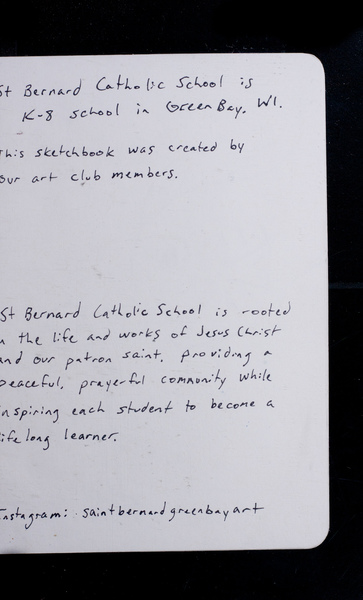 St Bernard Catholic School is
K-8 school in Green Bay, WI.
This sketchbook was created by
our art club members.
St Bernard Catholic School is rooted
in the life and works of Jesus Christ
and our patron saint, providing a
peaceful, prayerful community while
inspiring each student to become a
lifelong learner.
Instagram: saintbernardgreenbayart